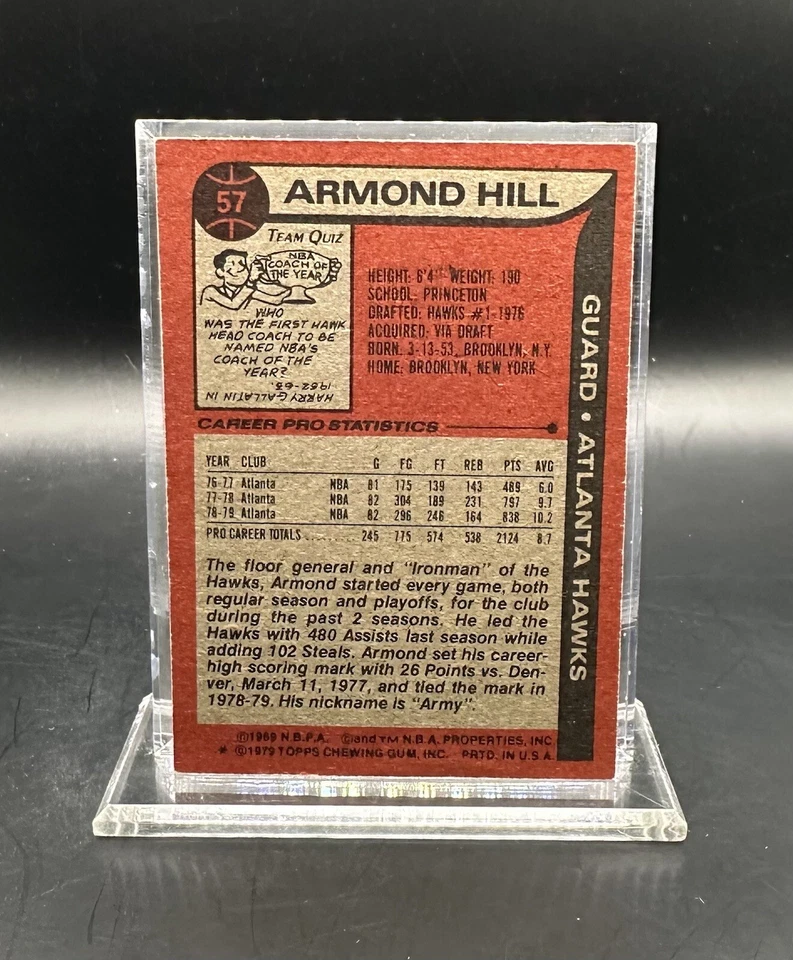 57
ARMOND HILL
TEAM QUIZ
NBA
COACH OF
THE YEAR
WHO
WAS THE FIRST HAWK
HEAD COACH TO BE
NAMED NBA'S
COACH OF THE
YEAR?
HARRY GALLATIN IN
1962-63.
HEIGHT: 6'4" WEIGHT: 190
SCHOOL: PRINCETON
DRAFTED: HAWKS #1-1976
ACQUIRED: VIA DRAFT
BORN: 3-13-53, BROOKLYN, N.Y.
HOME: BROOKLYN, NEW YORK
GUARD • ATLANTA HAWKS
CAREER PRO STATISTICS
YEAR CLUB G FG FT REB PTS AVG
76-77 Atlanta NBA 81 175 139 143 489 6.0
77-78 Atlanta NBA 82 304 189 231 797 9.7
78-79 Atlanta NBA 82 296 246 164 838 10.2
PRO CAREER TOTALS ......... 245 775 574 538 2124 8.7
The floor general and "Ironman" of the
Hawks, Armond started every game, both
regular season and playoffs, for the club
during the past 2 seasons. He led the
Hawks with 480 Assists last season while
adding 102 Steals. Armond set his career-
high scoring mark with 26 Points vs. Den-
ver, March 11, 1977, and tied the mark in
1978-79. His nickname is "Army".
Ⓟ1969 N.B.P.A. ©and TM N.B.A. PROPERTIES, INC
* ©1979 TOPPS CHEWING GUM, INC. PRTD. IN U.S.A